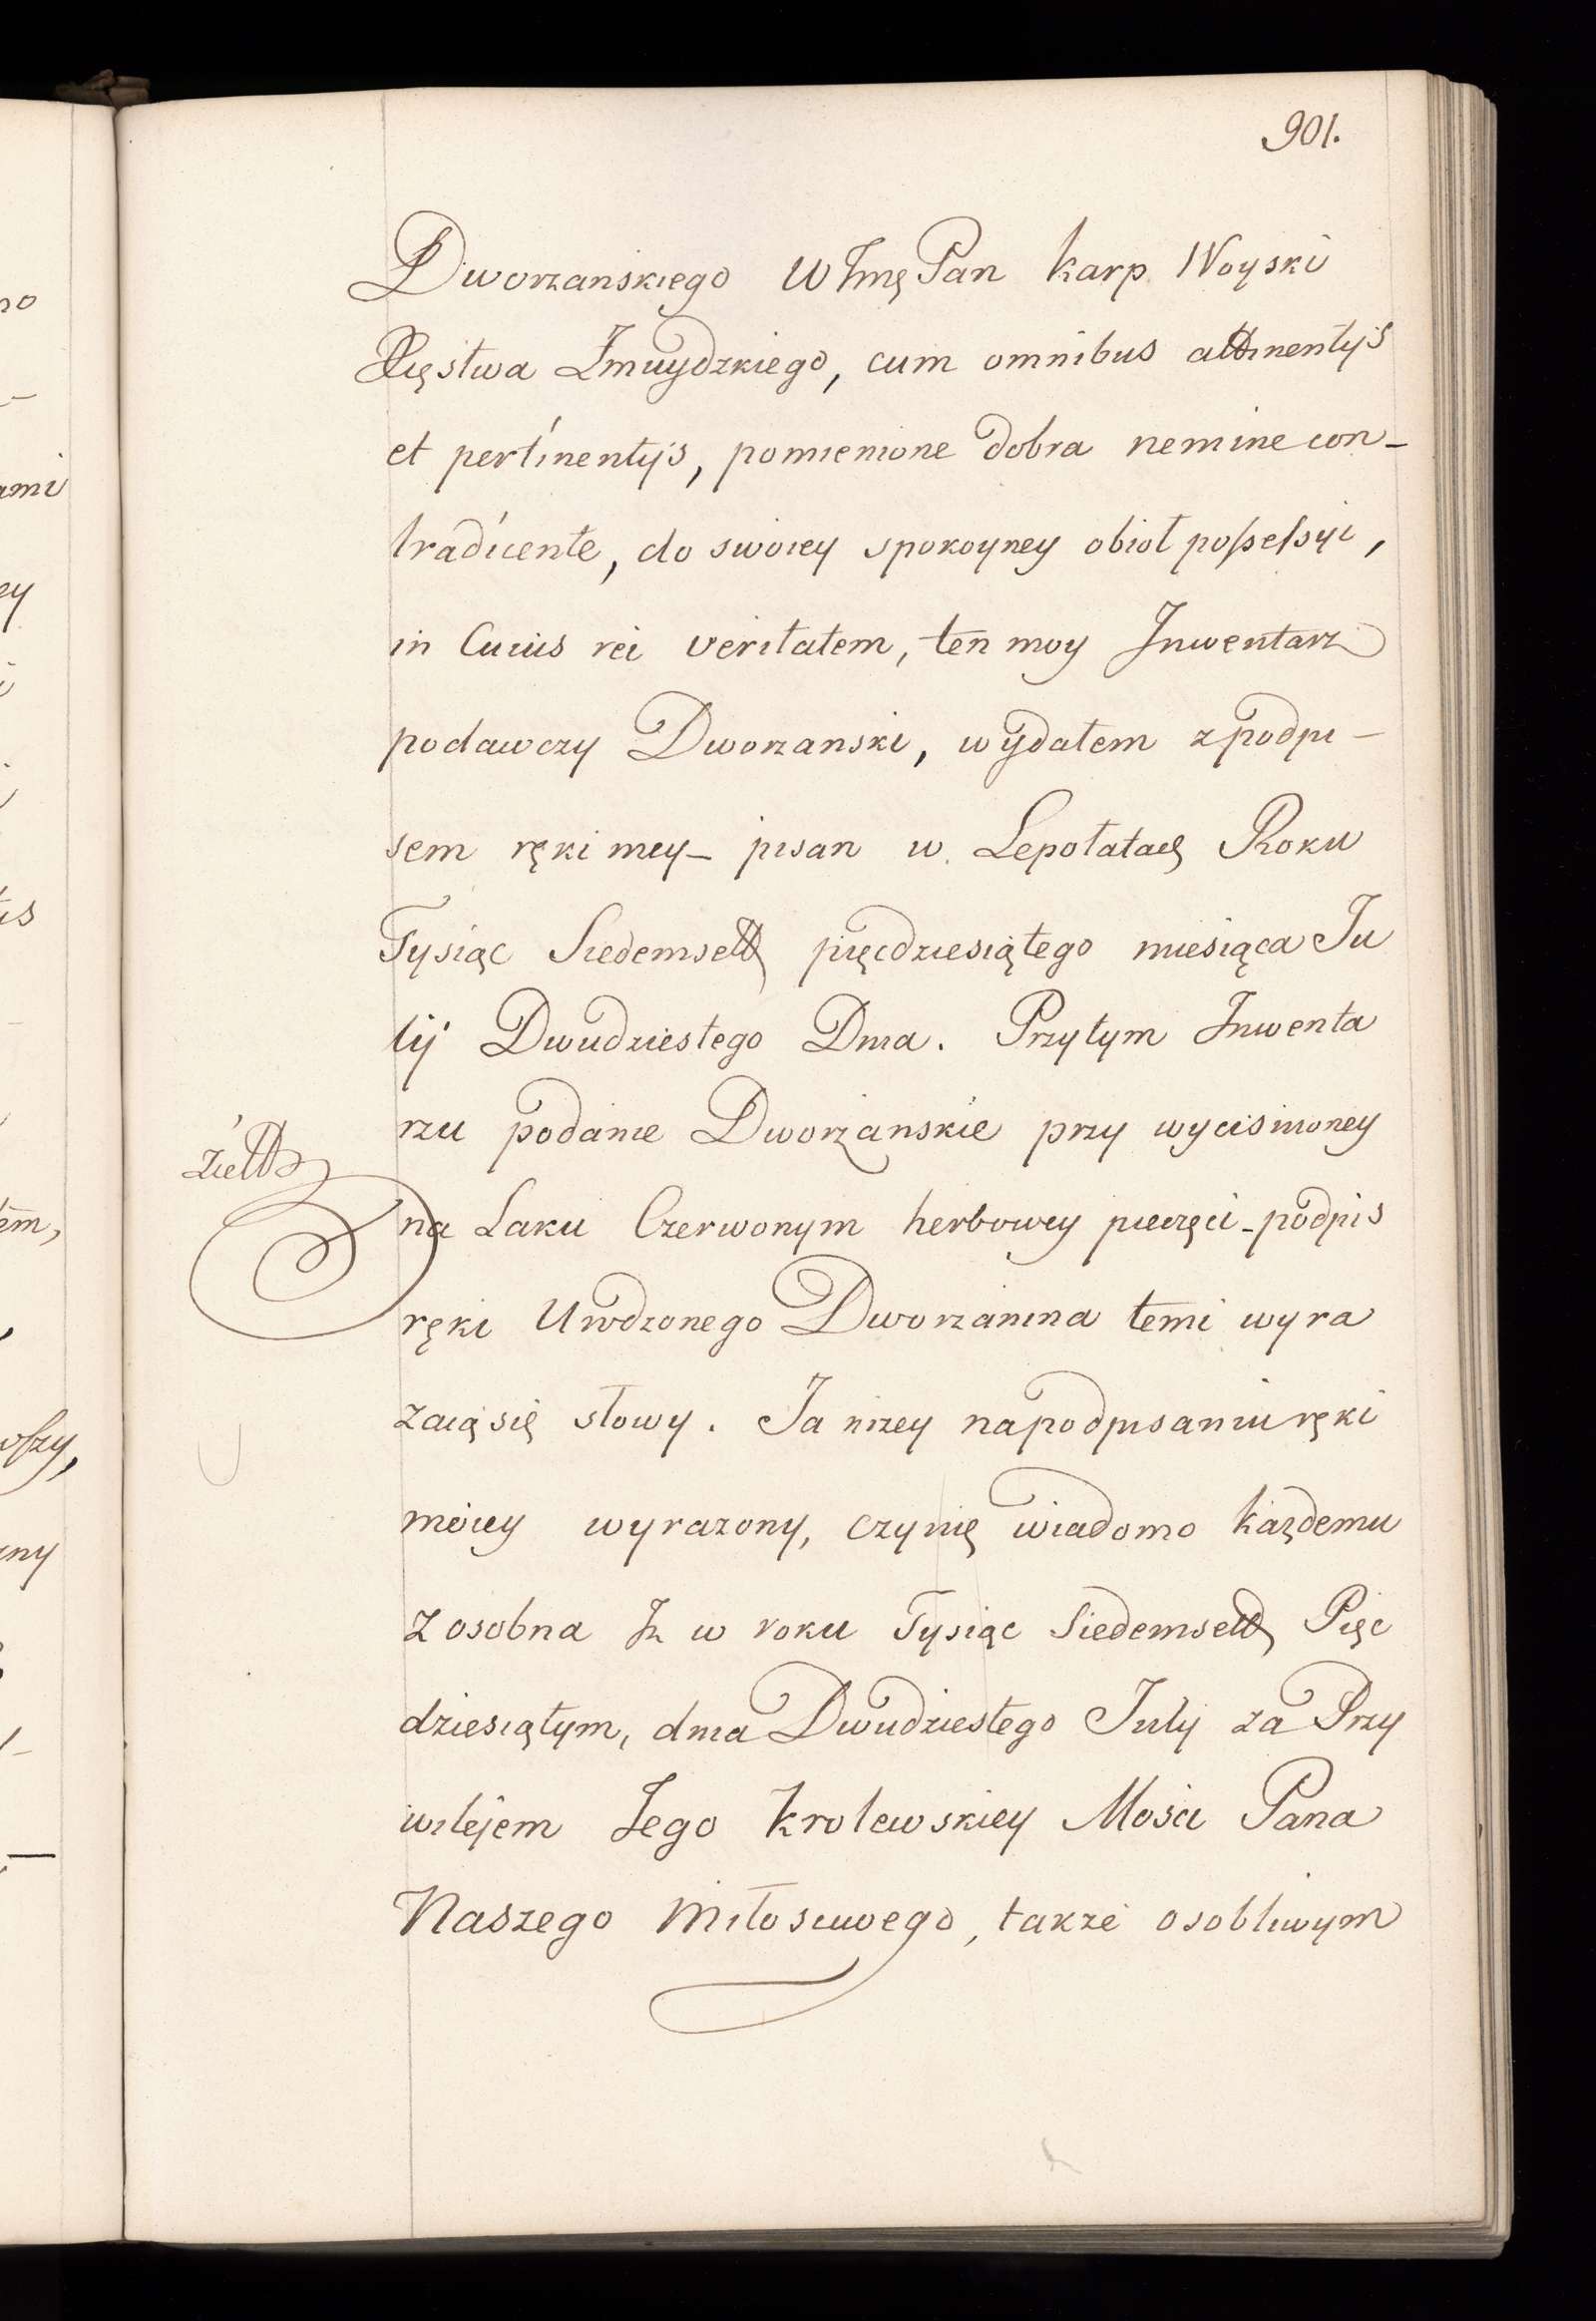 901.
Dworzanskiego W Jmę Pan Karp Woyski
Xięstwa Zmuydzkiego, cum omnibus attinentijs
et pertinentijs, pomienione dobra nemine con-
tradicente, do swoiey spokoyney obioł possessyi,
in Cuius rei veritatem, ten moy Inwentarz
podawczy Dworzanski, wydałem z podpi-
sem ręki mey - pisan w Lepołatach Roku
Tysiąc Siedemsett pięcdziesiątego miesiąca Ju
lij Dwudziestego Dnia. Przytym Inwenta
rzu podanie Dworzanskie przy wycisnioney
na Laku Czerwonym herbowey pieczęci - podpis
ręki Urodzonego Dworzanina temi wyra
zaią się słowy. Ja nizey na podpisaniu ręki
moiey wyrazony, czynię wiadomo kazdemu
z osobna Iz w roku Tysiąc Siedemsett Pięc
dziesiątym, dnia Dwudziestego July za Przy
wilejem Jego Krolewskiey Mości Pana
Naszego Miłosciwego, takze osobliwym